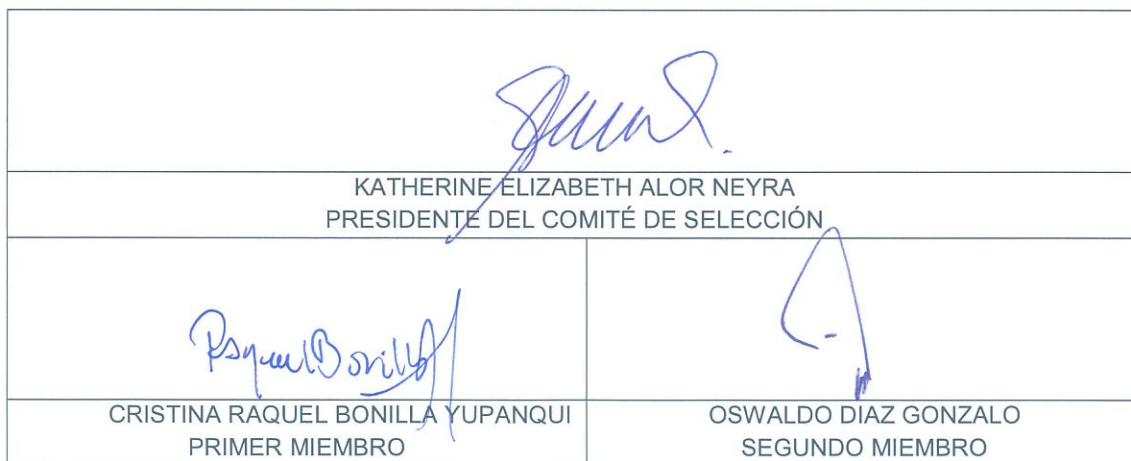 KATHERINE ELIZABETH ALOR NEYRA
PRESIDENTE DEL COMITÉ DE SELECCIÓN
Raquel Bonilla
CRISTINA RAQUEL BONILLA YUPANQUI
PRIMER MIEMBRO
OSWALDO DIAZ GONZALO
SEGUNDO MIEMBRO